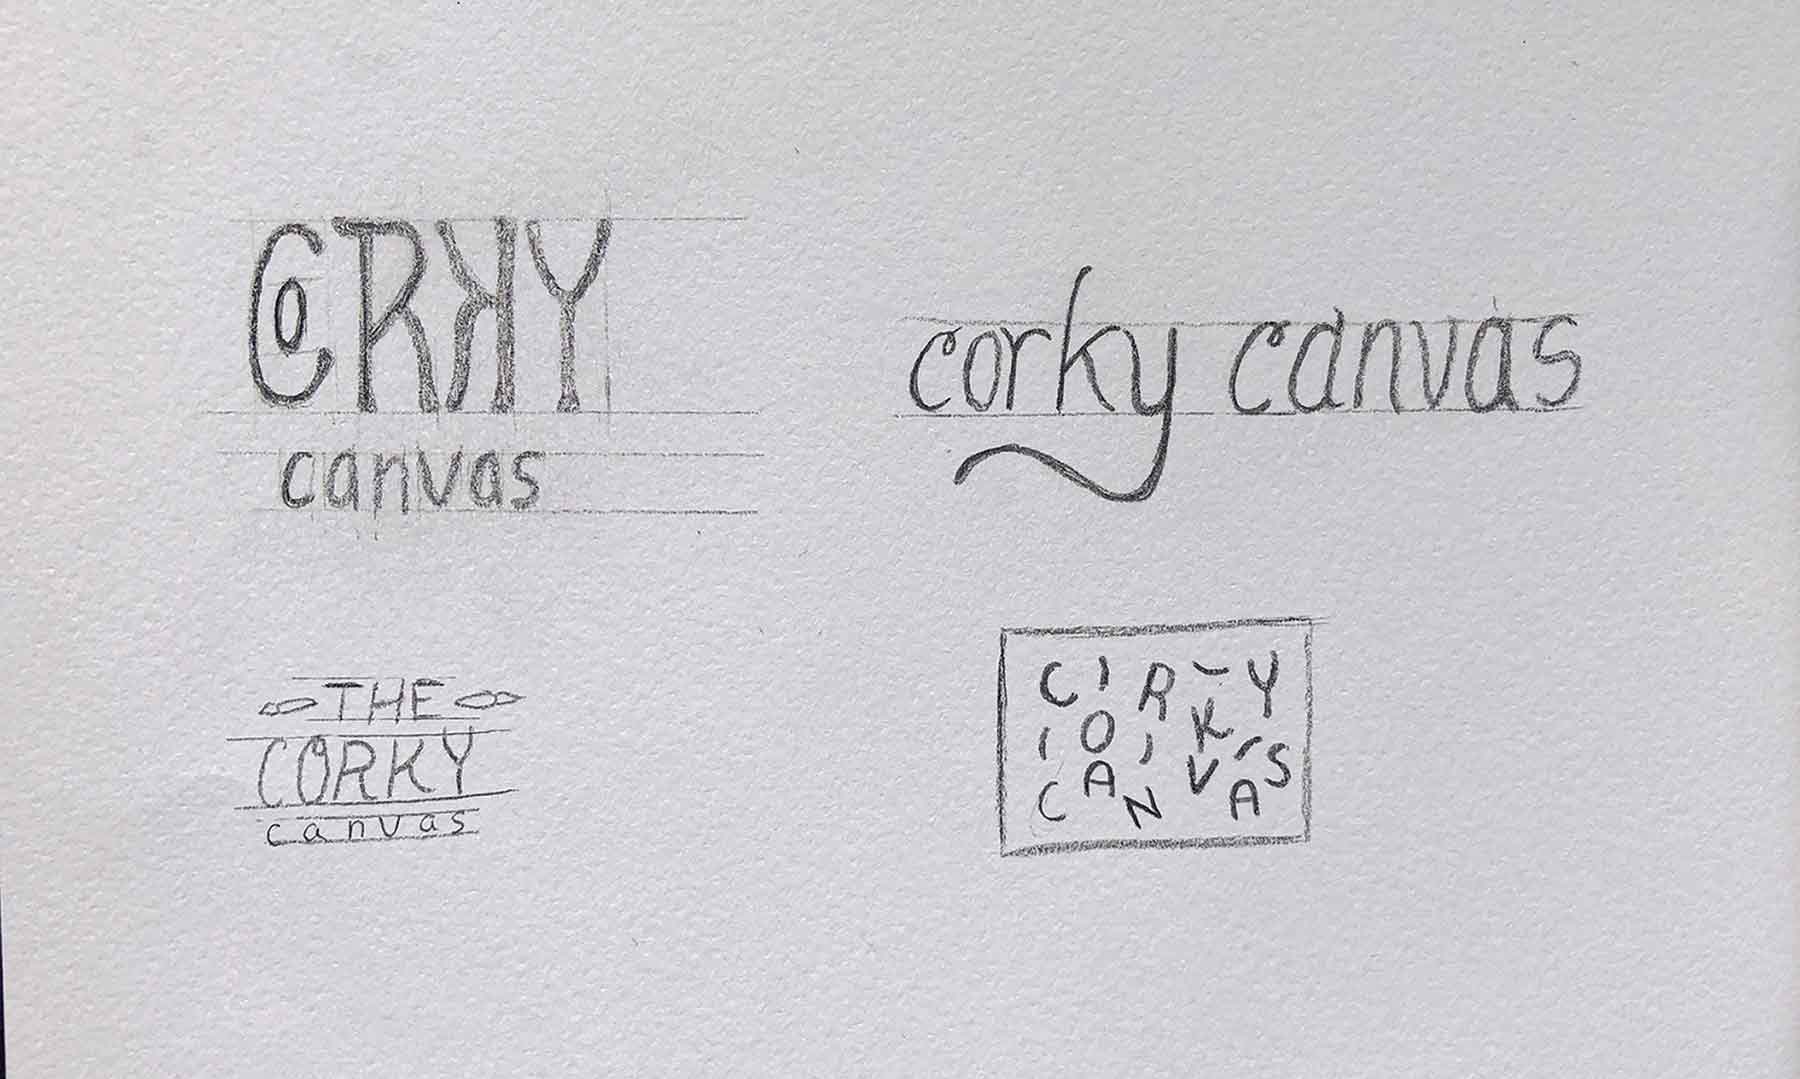 CORKY
canvas
corky canvas
THE
CORKY
canvas
CORKY
CANVAS